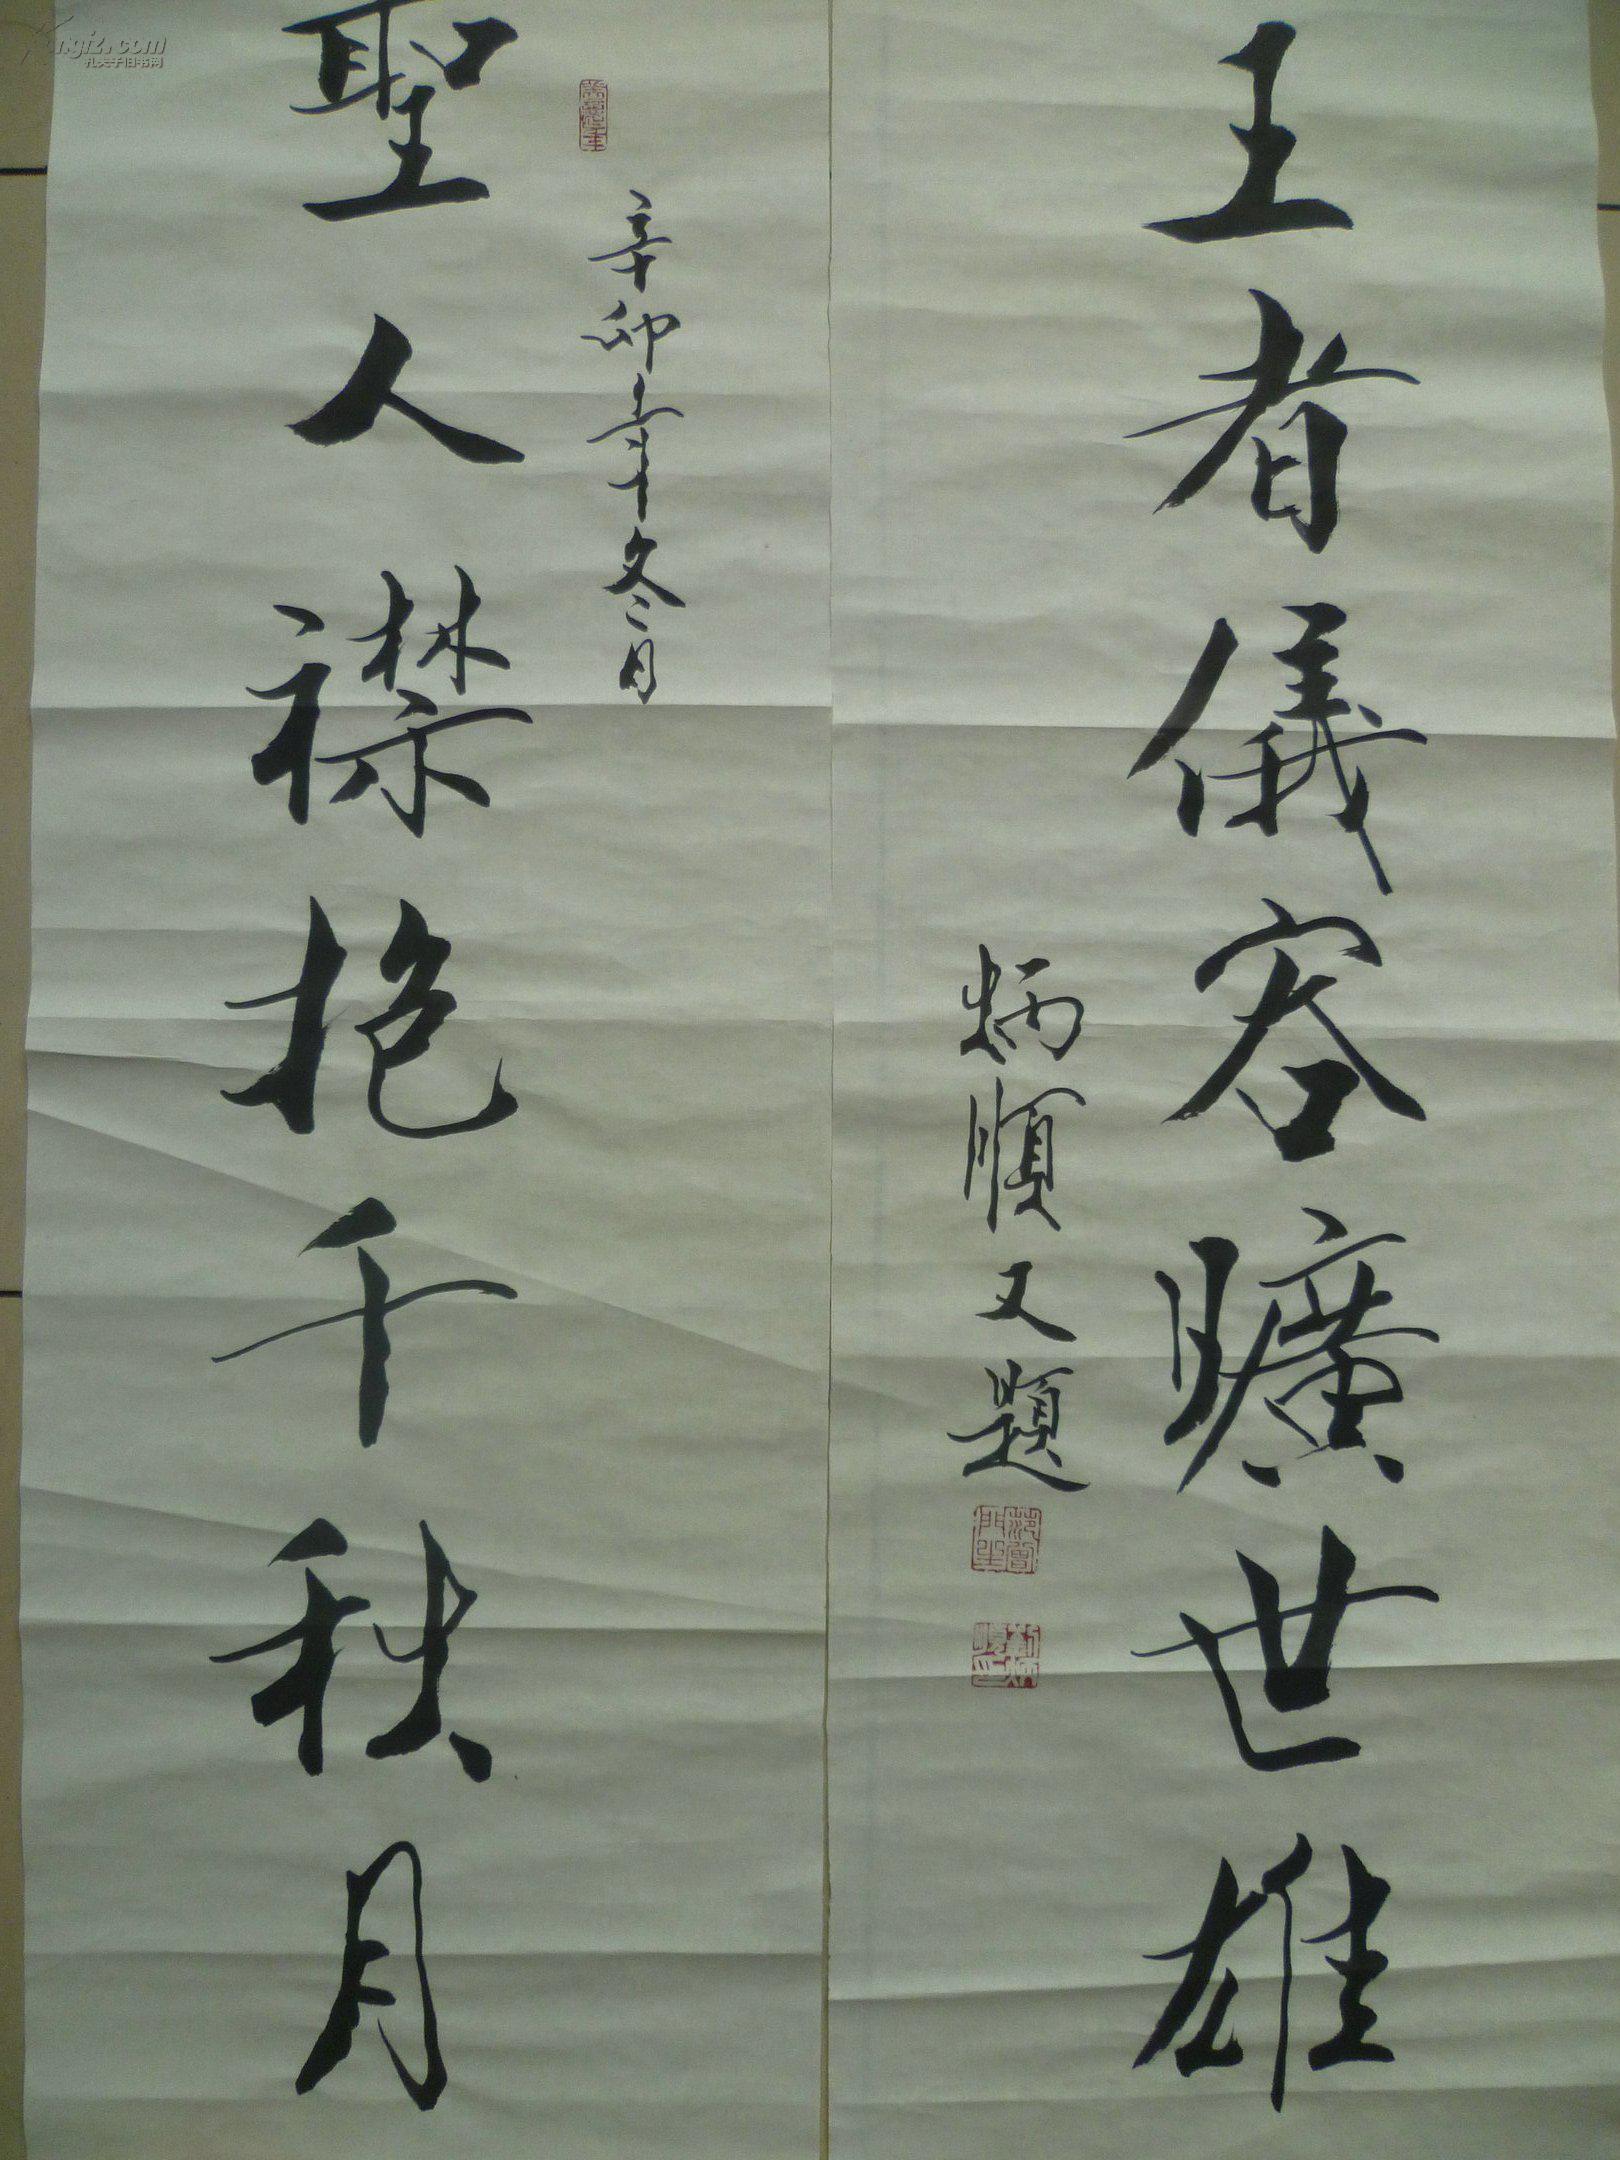 王者儀容曠世雄
炳順又題
辛卯年冬月
聖人襟抱千秋月
孔夫子旧书网